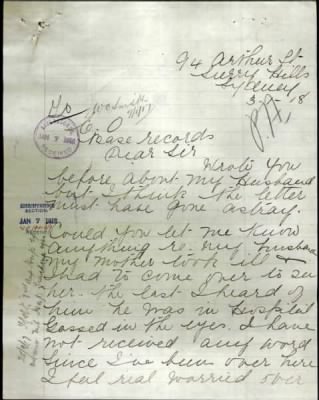 94 Arthur St
Surry Hills
Sydney
3 - - 18
To
E. O
Base records
Dear Sir
Wrote you
before about my Husband
but I think the letter
must have gone astray.
Could you let me know
anything re. my husband
my mother took ill &
I had to come over to see
her. the last I heard of
him he was in Hospital
Gassed in the eyes. I have
not received any word
since I've been over here
I feel real worried over
JAN 7 1918
RECEIVED
SECTION
JAN 7 1918